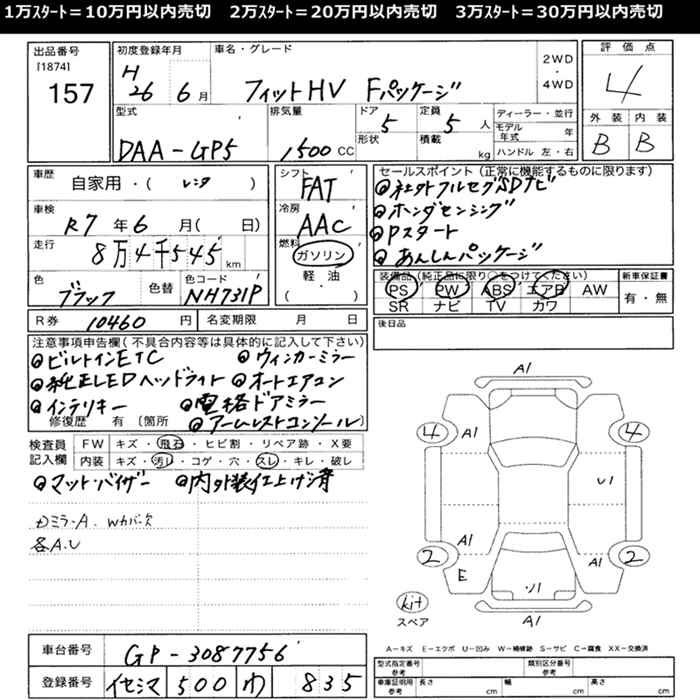 1万ｽﾀｰﾄ＝10万円以内売切　2万ｽﾀｰﾄ＝20万円以内売切　3万ｽﾀｰﾄ＝30万円以内売切
出品番号
[1874]
157
初度登録年月
H
26 6月
車名・グレード
フィットHV Fパッケージ
2WD
・
4WD
評価点
4
外装 内装
B B
型式
DAA-GP5
排気量
1500 CC
ドア
5
形状
定員
5 人
積載
kg
ディーラー・並行
モデル年式 年
ハンドル 左・右
車歴
自家用・( レンタ )
車検
R7年6月( 日)
走行
8万4千545 km
色
ブラック
色替
色コード
NH731P
シフト
FAT
冷房
AAC
燃料
ガソリン
・
軽・油
・
( )
セールスポイント（正常に機能するものに限ります）
社外フルセグSDナビ
ホンダセンシング
Pスタート
あんしんパッケージ
装備品（純正品に限り○をつけてください）
PS PW ABS エアB AW
SR ナビ TV カワ
新車保証書
有・無
R券 10460 円
名変期限 月 日
後日品
注意事項申告欄（不具合内容等は具体的に記入して下さい）
ビルトインETC ウィンカーミラー
純正LEDヘッドライト オートエアコン
インテリキー 電格ドアミラー
修復歴 有〔箇所 アームレストコンソール〕
検査員
記入欄
FW キズ・飛石・ヒビ割・リペア跡・X要
内装 キズ・汚レ・コゲ・穴・スレ・キレ・破レ
マット・バイザー 内外装仕上げ済
ミラ-A. Wカバーズ
各A.U
A1
4 4
A1
U1
A1
A1
2 2
E
U1
kit
スペア
A1
A＝キズ E＝エクボ U＝凹み W＝補修跡 S＝サビ C＝腐食 XX＝交換済
車台番号
GP-3087756
登録番号
イセシマ 500 わ 835
型式指定番号
参考
類別区分番号
参考
車庫証明用
参考
長さ cm 幅 cm 高さ cm